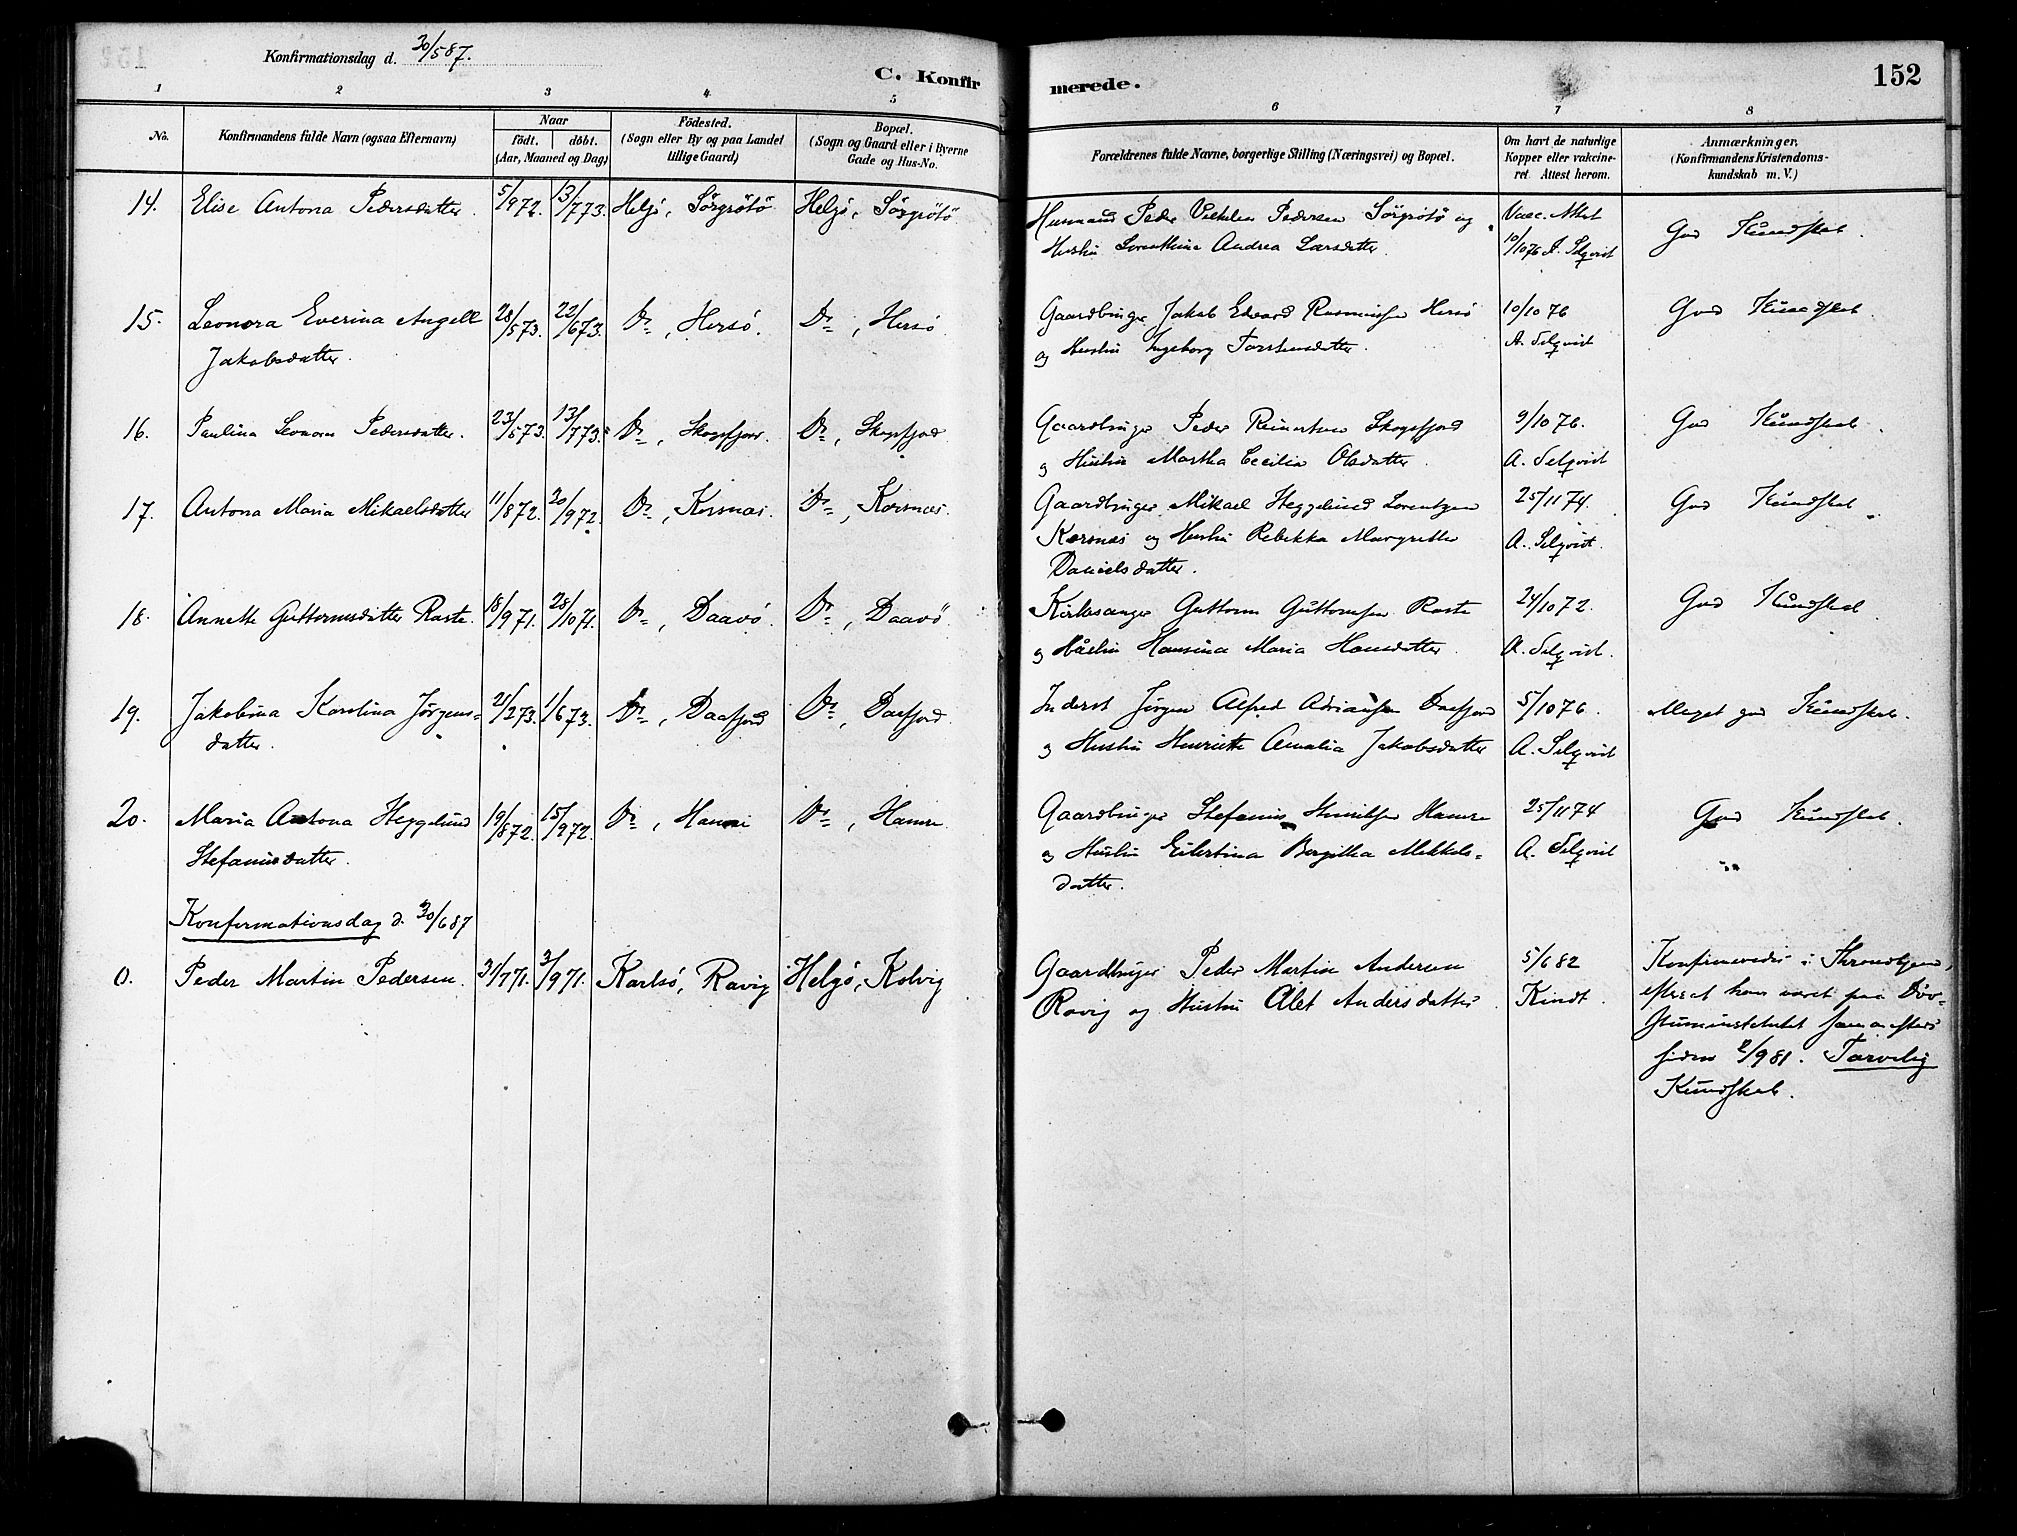 Konfirmationsdag d. 30/5 87.
C. Konfirmerede.
152
1 2 3 4 5 6 7 8
No.
Konfirmandens fulde Navn (ogsaa Efternavn)
Naar
födt. döbt.
(Aar, Maaned og Dag)
Födested.
(Sogn eller By og paa Landet
tillige Gaard)
Bopæl.
(Sogn og Gaard eller i Byerne
Gade og Hus-No.
Forældrenes fulde Navne, borgerlige Stilling (Næringsvei) og Bopæl.
Om havt de naturlige
Kopper eller vakcine-
ret. Attest herom.
Anmærkninger.
(Konfirmandens Kristendoms-
kundskab m. V.)
14. Elise Antona Pedersdatter. 5/9 72. 13/7 73. Helgö, Sörgrötö Helgö, Sörgrötö Husmand Peder Pedersen Sörgrötö og Vacc. Attest God Kundskab.
Hustru Andrea Larsdatter. 10/10 76 A. Selqvist
15. Leonora Everina Angell 28/5 73. 22/6 73. Do, Hersö. Do, Hersö Gaardbruger Jakob Edvard Rasmussen Hersö 10/10 76 God Kundskab.
Jakobsdatter. og Hustru Ingeborg Torstensdatter. A. Selqvist
16. Paulina Leonora Pedersdatter. 23/5 73. 13/7 73. Do, Skogsfjord. Do, Skogsfjord Gaardbruger Peder Reinertsen Skogsfjord 9/10 76. God Kundskab.
og Hustru Martha Cecilia Olsdatter. A. Selqvist
17. Antona Maria Mikaelsdatter 11/8 72. 20/9 72. Do, Korsnæs. Do, Korsnæs. Gaardbruger Mikael Heggelund Lorentzen 25/11 74. God Kundskab.
Korsnæs og Hustru Rebekka Margrethe A. Selqvist.
Danielsdatter.
18. Annette Guttormsdatter Raste. 18/9 71. 28/10 71. Do, Daavö. Do, Daavö Kirkesanger Guttorm Guttormsen Raste 24/10 72. God Kundskab.
og Hustru Hansina Maria Hansdatter. A. Selqvist.
19. Jakobina Karolina Jörgens- 21/2 73. 1/6 73. Do, Daafjord Do, Daafjord. Inderst Jörgen Alfred Adriansen Daafjord 5/10 76. Meget god Kundskab.
datter. og Hustru Henriette Amalia Jakobsdatter A. Selqvist
20. Maria Antona Heggelund 19/8 72. 15/9 72. Do, Hamre Do, Hamre. Gaardbruger Stefanus Hamre 25/11 74 God Kundskab.
Stefanusdatter. og Hustru Eilertina Bergitha Mikkels- A. Selqvist
datter.
Konfirmationsdag d. 30/6 87
0. Peder Martin Pedersen. 31/7 71. 3/9 71. Karlsö, Ravig Helgö, Kolvig Gaardbruger Peder Martin Andersen 5/6 82 Konfirmeredes i Throndhjem,
Ravig og Hustru Alet Andersdatter. Kindt. efterat have været paa Döv-
stuminstitutet
siden 2/9 81. Tarvelig
Kundskab.